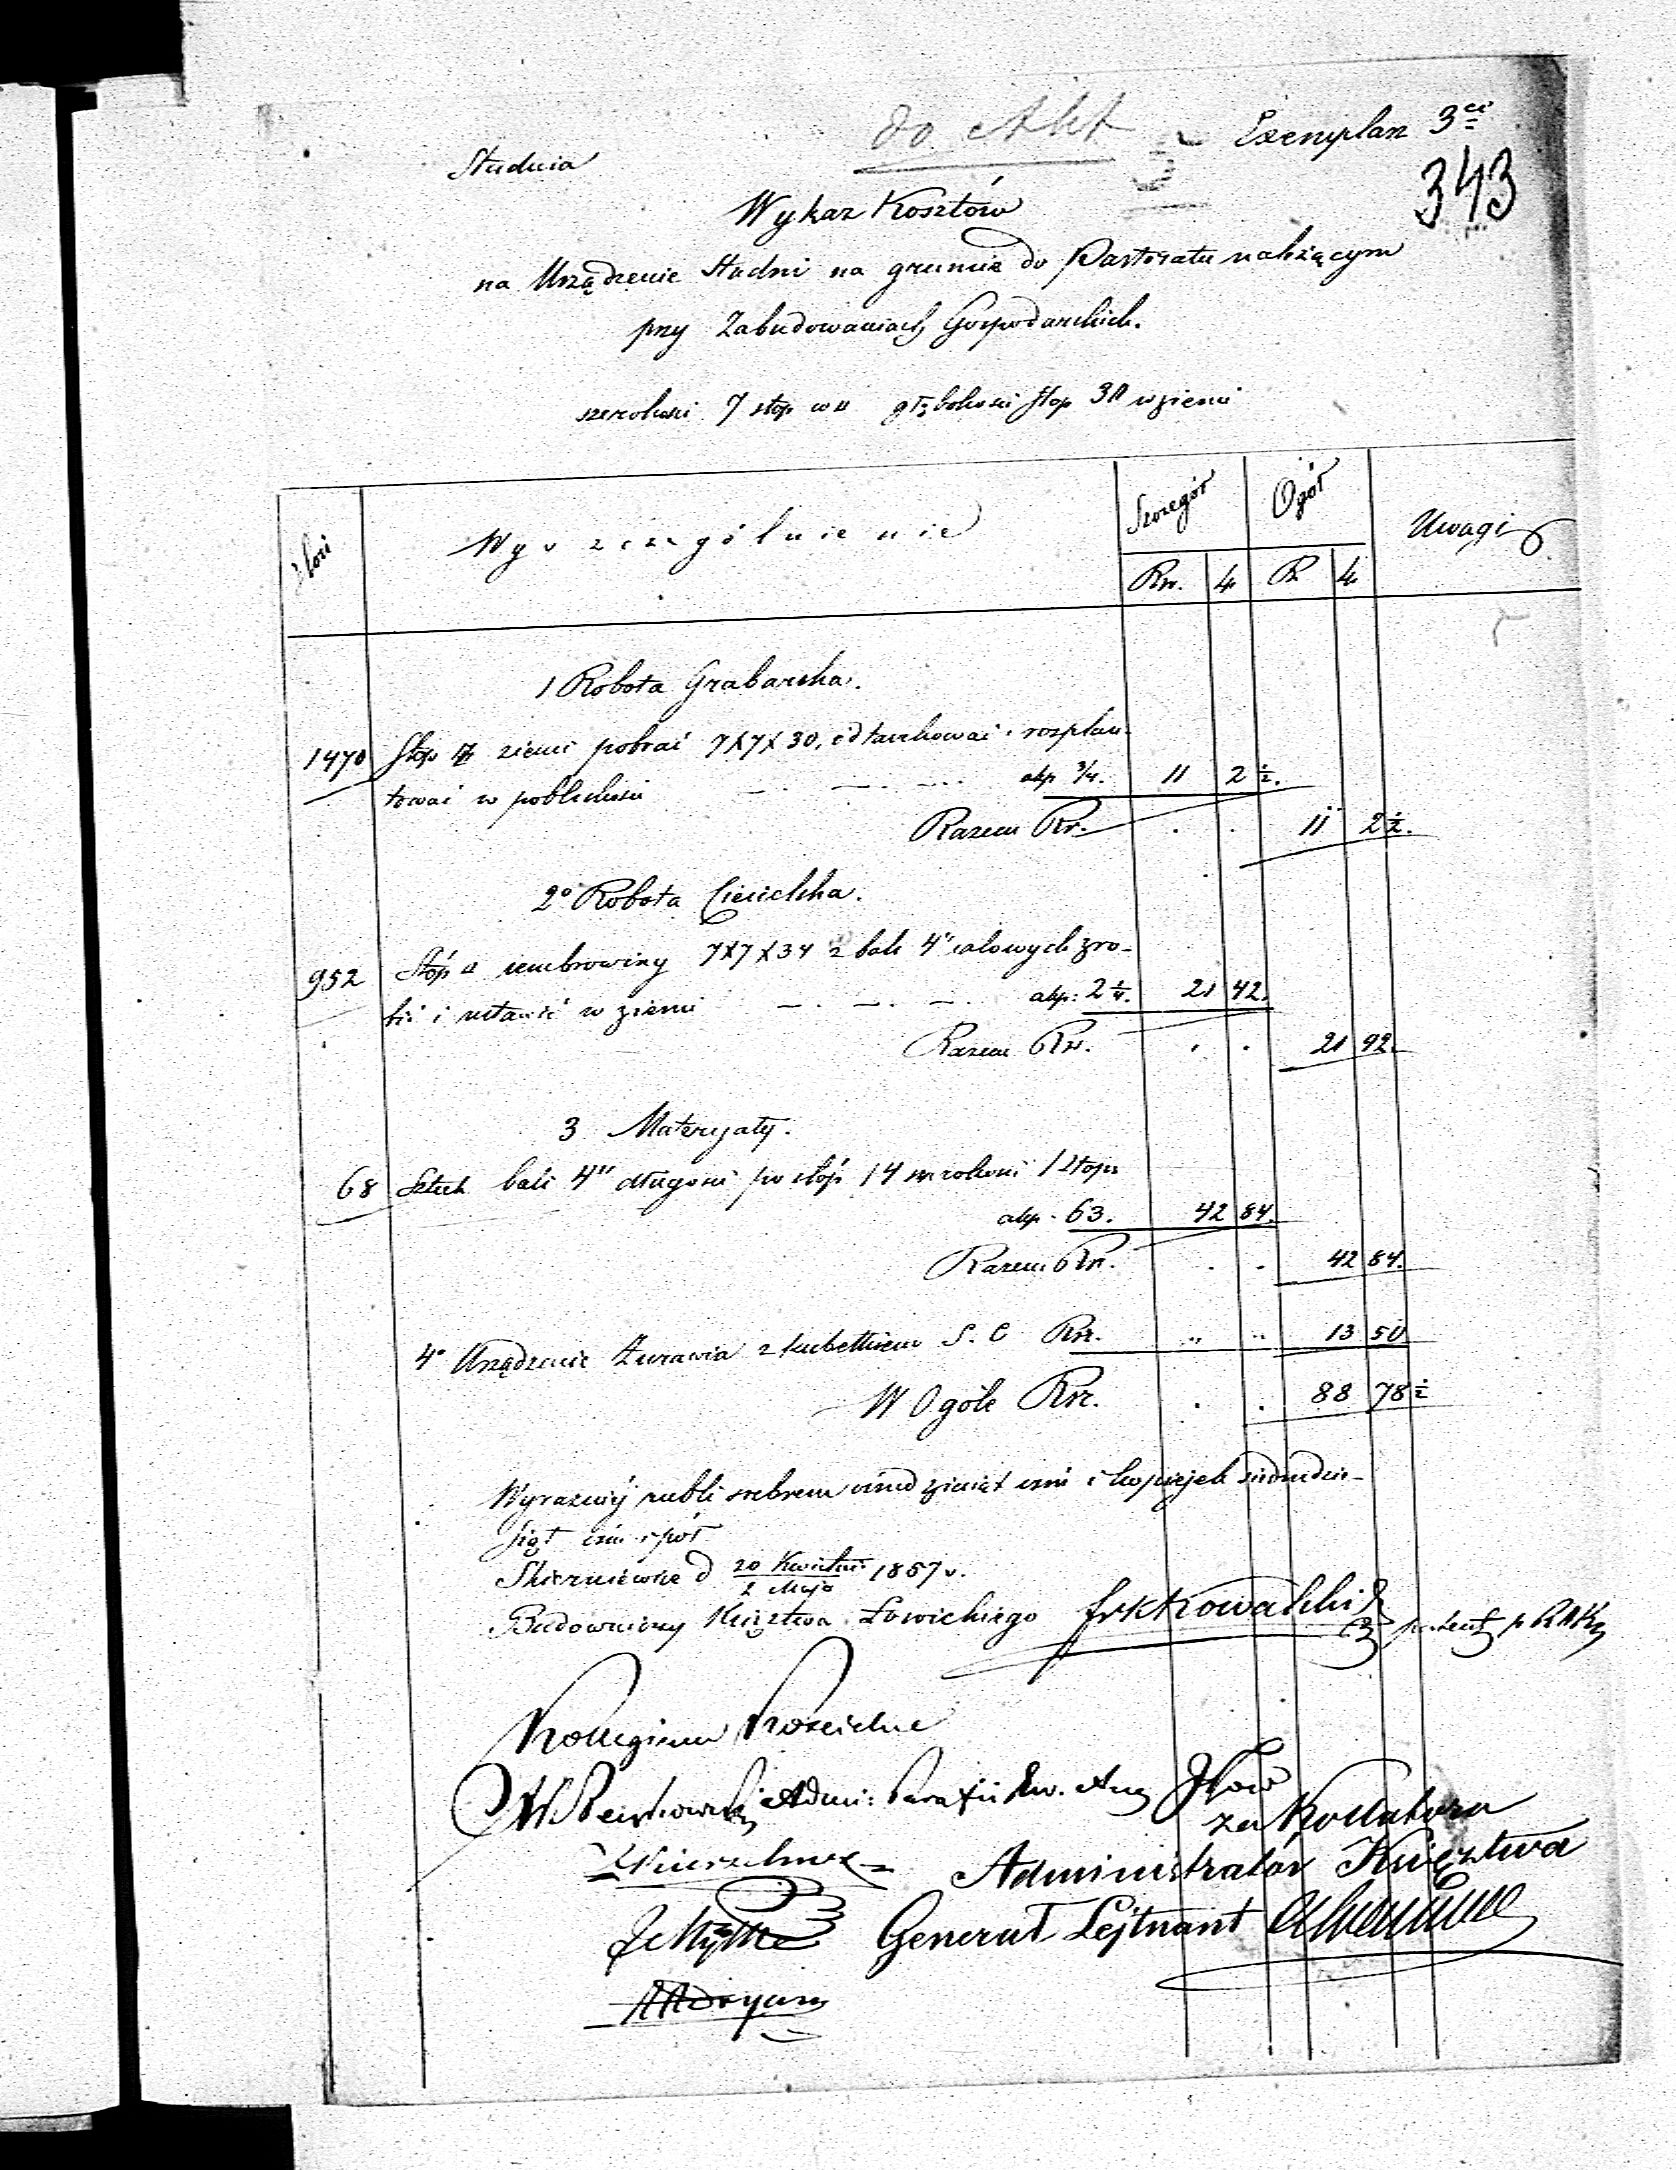 do Akt
Exemplarz 3ci
343
Studnia
Wykaz Kosztów
na Urządzenie Studni na gruncie do Pastoratu należącym
przy Zabudowaniach Gospodarskich.
szerokości 7 stop w □ głębokości stop 30 w ziemi
Ilość
Wyszczególnienie
Szczegół
Ogół
Uwagi
Rsr. k R k
1 Robota Grabarska.
1470 Stop ziemi pobrać 7X7X30, odtaczkować i rozplan-
tować w poblizkości — . — . — . alip 3/4. 11 2 1/2.
Razem Rsr. . . 11 2 1/2.
2o Robota Ciesielska.
952 Stóp □ cembrowiny 7X7X34 z bali 4" calowych zro-
bić i ustawić w ziemi — . — . — . alip: 2 1/4. 21 42.
Razem Rsr. . . 21 42.
3 Materyały.
68 Sztuk bali 4" długości po stóp 14 szerokości 1 stopa
alip - 63. 42 84.
Razem Rsr. . . 42 84.
4o Urządzenie Żurawia z kubełkiem S. C Rsr. " " 13 50
W Ogóle Rsr. . . 88 78 1/2
Wyrazniej rubli srebrem ośmdziesiąt ośm i kopiejek siedmdzie-
siąt ośm i pół
Skierniewice d 20 Kwietnia / 2 Maja 1857 r.
Budowniczy Księztwa Łowickiego Kowalski
Kollegium Kościelne
Admi: Parafii Ew. Aug Iłow
za Kollatora
Administrator Księztwa
Generał Lejtnant